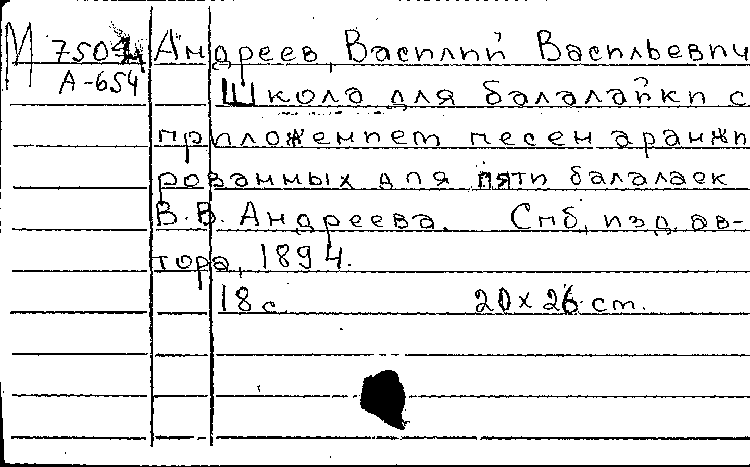 М 7504 Андреев, Василий Васильевич
А-654
Школа для балалайки с
приложением песен аранжи
рованных для пяти балалаек
В.В. Андреева. Спб, изд. ав-
тора, 1894.
18 с 20 x 26 см.